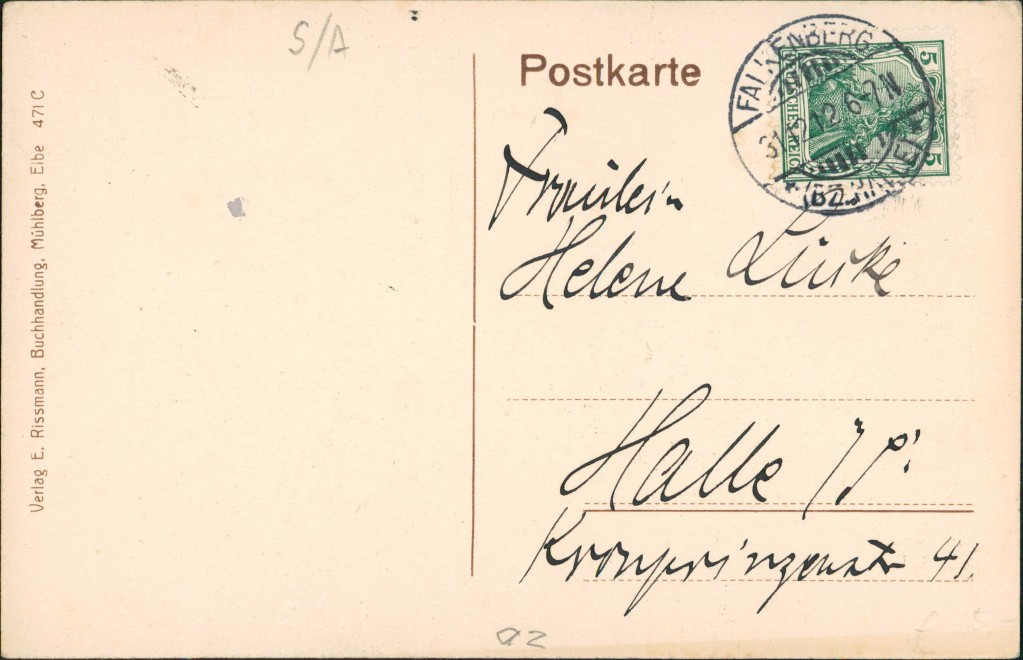 S/A
Postkarte
FALKENBERG
31.12.12.6-7N
* (BZ. HALLE) *
5
5
Fräulein
Helene Lücke
Halle /S.
Kronprinzenstr 41.
Verlag E. Rissmann, Buchhandlung, Mühlberg, Elbe 471 C
az